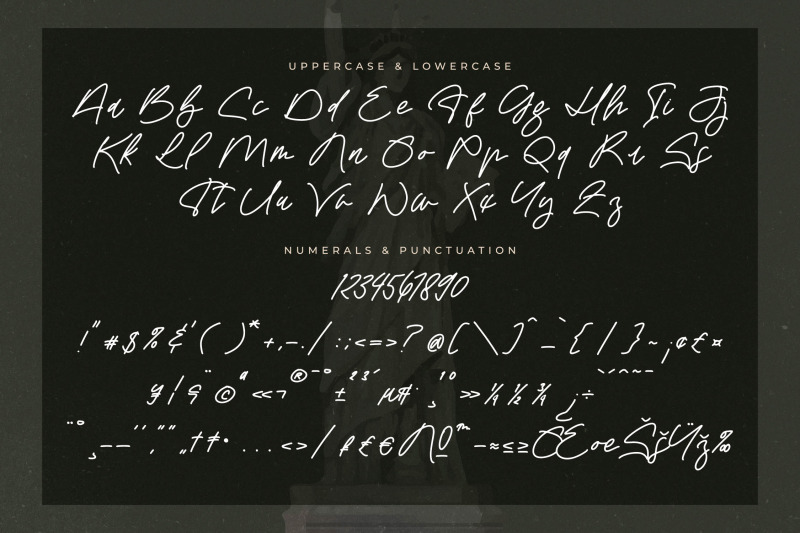 UPPERCASE & LOWERCASE
Aa Bb Cc Dd Ee Ff Gg Hh Ii Jj
Kk Ll Mm Nn Oo Pp Qq Rr Ss
Tt Uu Vv Ww Xx Yy Zz
NUMERALS & PUNCTUATION
1234567890
!"#$%&'()*+,-./:;<=>?@[\]^_`{|}~¡¢£¤
¥¦§¨©ª«¬®¯°±²³´µ¶·¸¹º»¼½¾¿÷